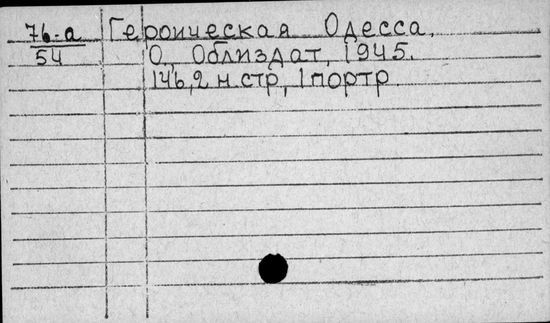 76-а Героическая Одесса.
54 О., Облиздат, 1945.
146,2 н.стр, 1 портр